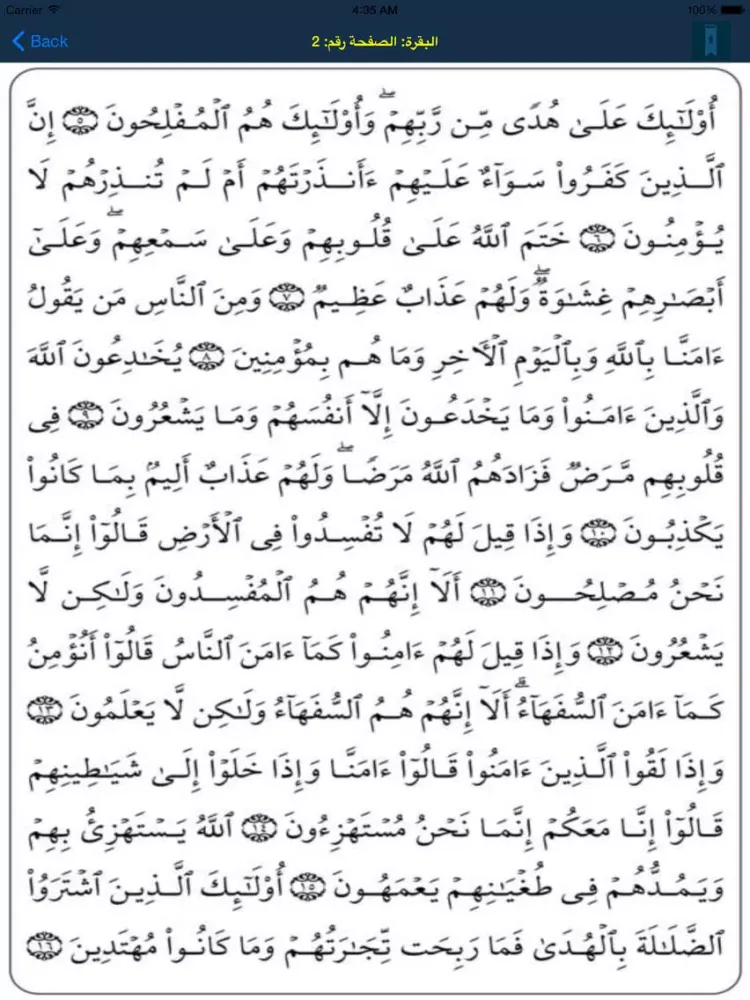 Carrier 4:35 AM 100%
Back البقرة: الصفحة رقم: 2
أُوْلَـٰٓئِكَ عَلَىٰ هُدًى مِّن رَّبِّهِمْۖ وَأُوْلَـٰٓئِكَ هُمُ ٱلْمُفْلِحُونَ ۝٥ إِنَّ
ٱلَّذِينَ كَفَرُواْ سَوَآءٌ عَلَيْهِمْ ءَأَنذَرْتَهُمْ أَمْ لَمْ تُنذِرْهُمْ لَا
يُؤْمِنُونَ ۝٦ خَتَمَ ٱللَّهُ عَلَىٰ قُلُوبِهِمْ وَعَلَىٰ سَمْعِهِمْۖ وَعَلَىٰٓ
أَبْصَـٰرِهِمْ غِشَـٰوَةٌۖ وَلَهُمْ عَذَابٌ عَظِيمٌ ۝٧ وَمِنَ ٱلنَّاسِ مَن يَقُولُ
ءَامَنَّا بِٱللَّهِ وَبِٱلْيَوْمِ ٱلْـَٔاخِرِ وَمَا هُم بِمُؤْمِنِينَ ۝٨ يُخَـٰدِعُونَ ٱللَّهَ
وَٱلَّذِينَ ءَامَنُواْ وَمَا يَخْدَعُونَ إِلَّآ أَنفُسَهُمْ وَمَا يَشْعُرُونَ ۝٩ فِى
قُلُوبِهِم مَّرَضٌ فَزَادَهُمُ ٱللَّهُ مَرَضًاۖ وَلَهُمْ عَذَابٌ أَلِيمٌۢ بِمَا كَانُواْ
يَكْذِبُونَ ۝١٠ وَإِذَا قِيلَ لَهُمْ لَا تُفْسِدُواْ فِى ٱلْأَرْضِ قَالُوٓاْ إِنَّمَا
نَحْنُ مُصْلِحُونَ ۝١١ أَلَآ إِنَّهُمْ هُمُ ٱلْمُفْسِدُونَ وَلَـٰكِن لَّا
يَشْعُرُونَ ۝١٢ وَإِذَا قِيلَ لَهُمْ ءَامِنُواْ كَمَآ ءَامَنَ ٱلنَّاسُ قَالُوٓاْ أَنُؤْمِنُ
كَمَآ ءَامَنَ ٱلسُّفَهَآءُۗ أَلَآ إِنَّهُمْ هُمُ ٱلسُّفَهَآءُ وَلَـٰكِن لَّا يَعْلَمُونَ ۝١٣
وَإِذَا لَقُواْ ٱلَّذِينَ ءَامَنُواْ قَالُوٓاْ ءَامَنَّا وَإِذَا خَلَوْاْ إِلَىٰ شَيَـٰطِينِهِمْ
قَالُوٓاْ إِنَّا مَعَكُمْ إِنَّمَا نَحْنُ مُسْتَهْزِءُونَ ۝١٤ ٱللَّهُ يَسْتَهْزِئُ بِهِمْ
وَيَمُدُّهُمْ فِى طُغْيَـٰنِهِمْ يَعْمَهُونَ ۝١٥ أُوْلَـٰٓئِكَ ٱلَّذِينَ ٱشْتَرَوُاْ
ٱلضَّلَـٰلَةَ بِٱلْهُدَىٰ فَمَا رَبِحَت تِّجَـٰرَتُهُمْ وَمَا كَانُواْ مُهْتَدِينَ ۝١٦